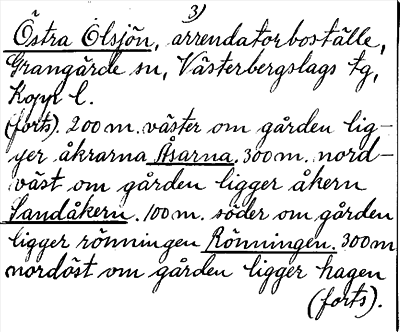 3)
Östra Ölsjön, arrendatorboställe,
Grangärde sn, Västerbergslags tg,
Kopp l.
(forts). 200 m. väster om gården lig-
ger åkrarna Åsarna. 300 m. nord-
väst om gården ligger åkern
Sandåkern. 100 m. söder om gården
ligger rönningen Rönningen. 300 m
nordöst om gården ligger hagen
(forts).